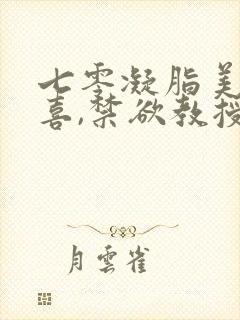 七零凝脂美
喜,禁欲教授
月雲雀